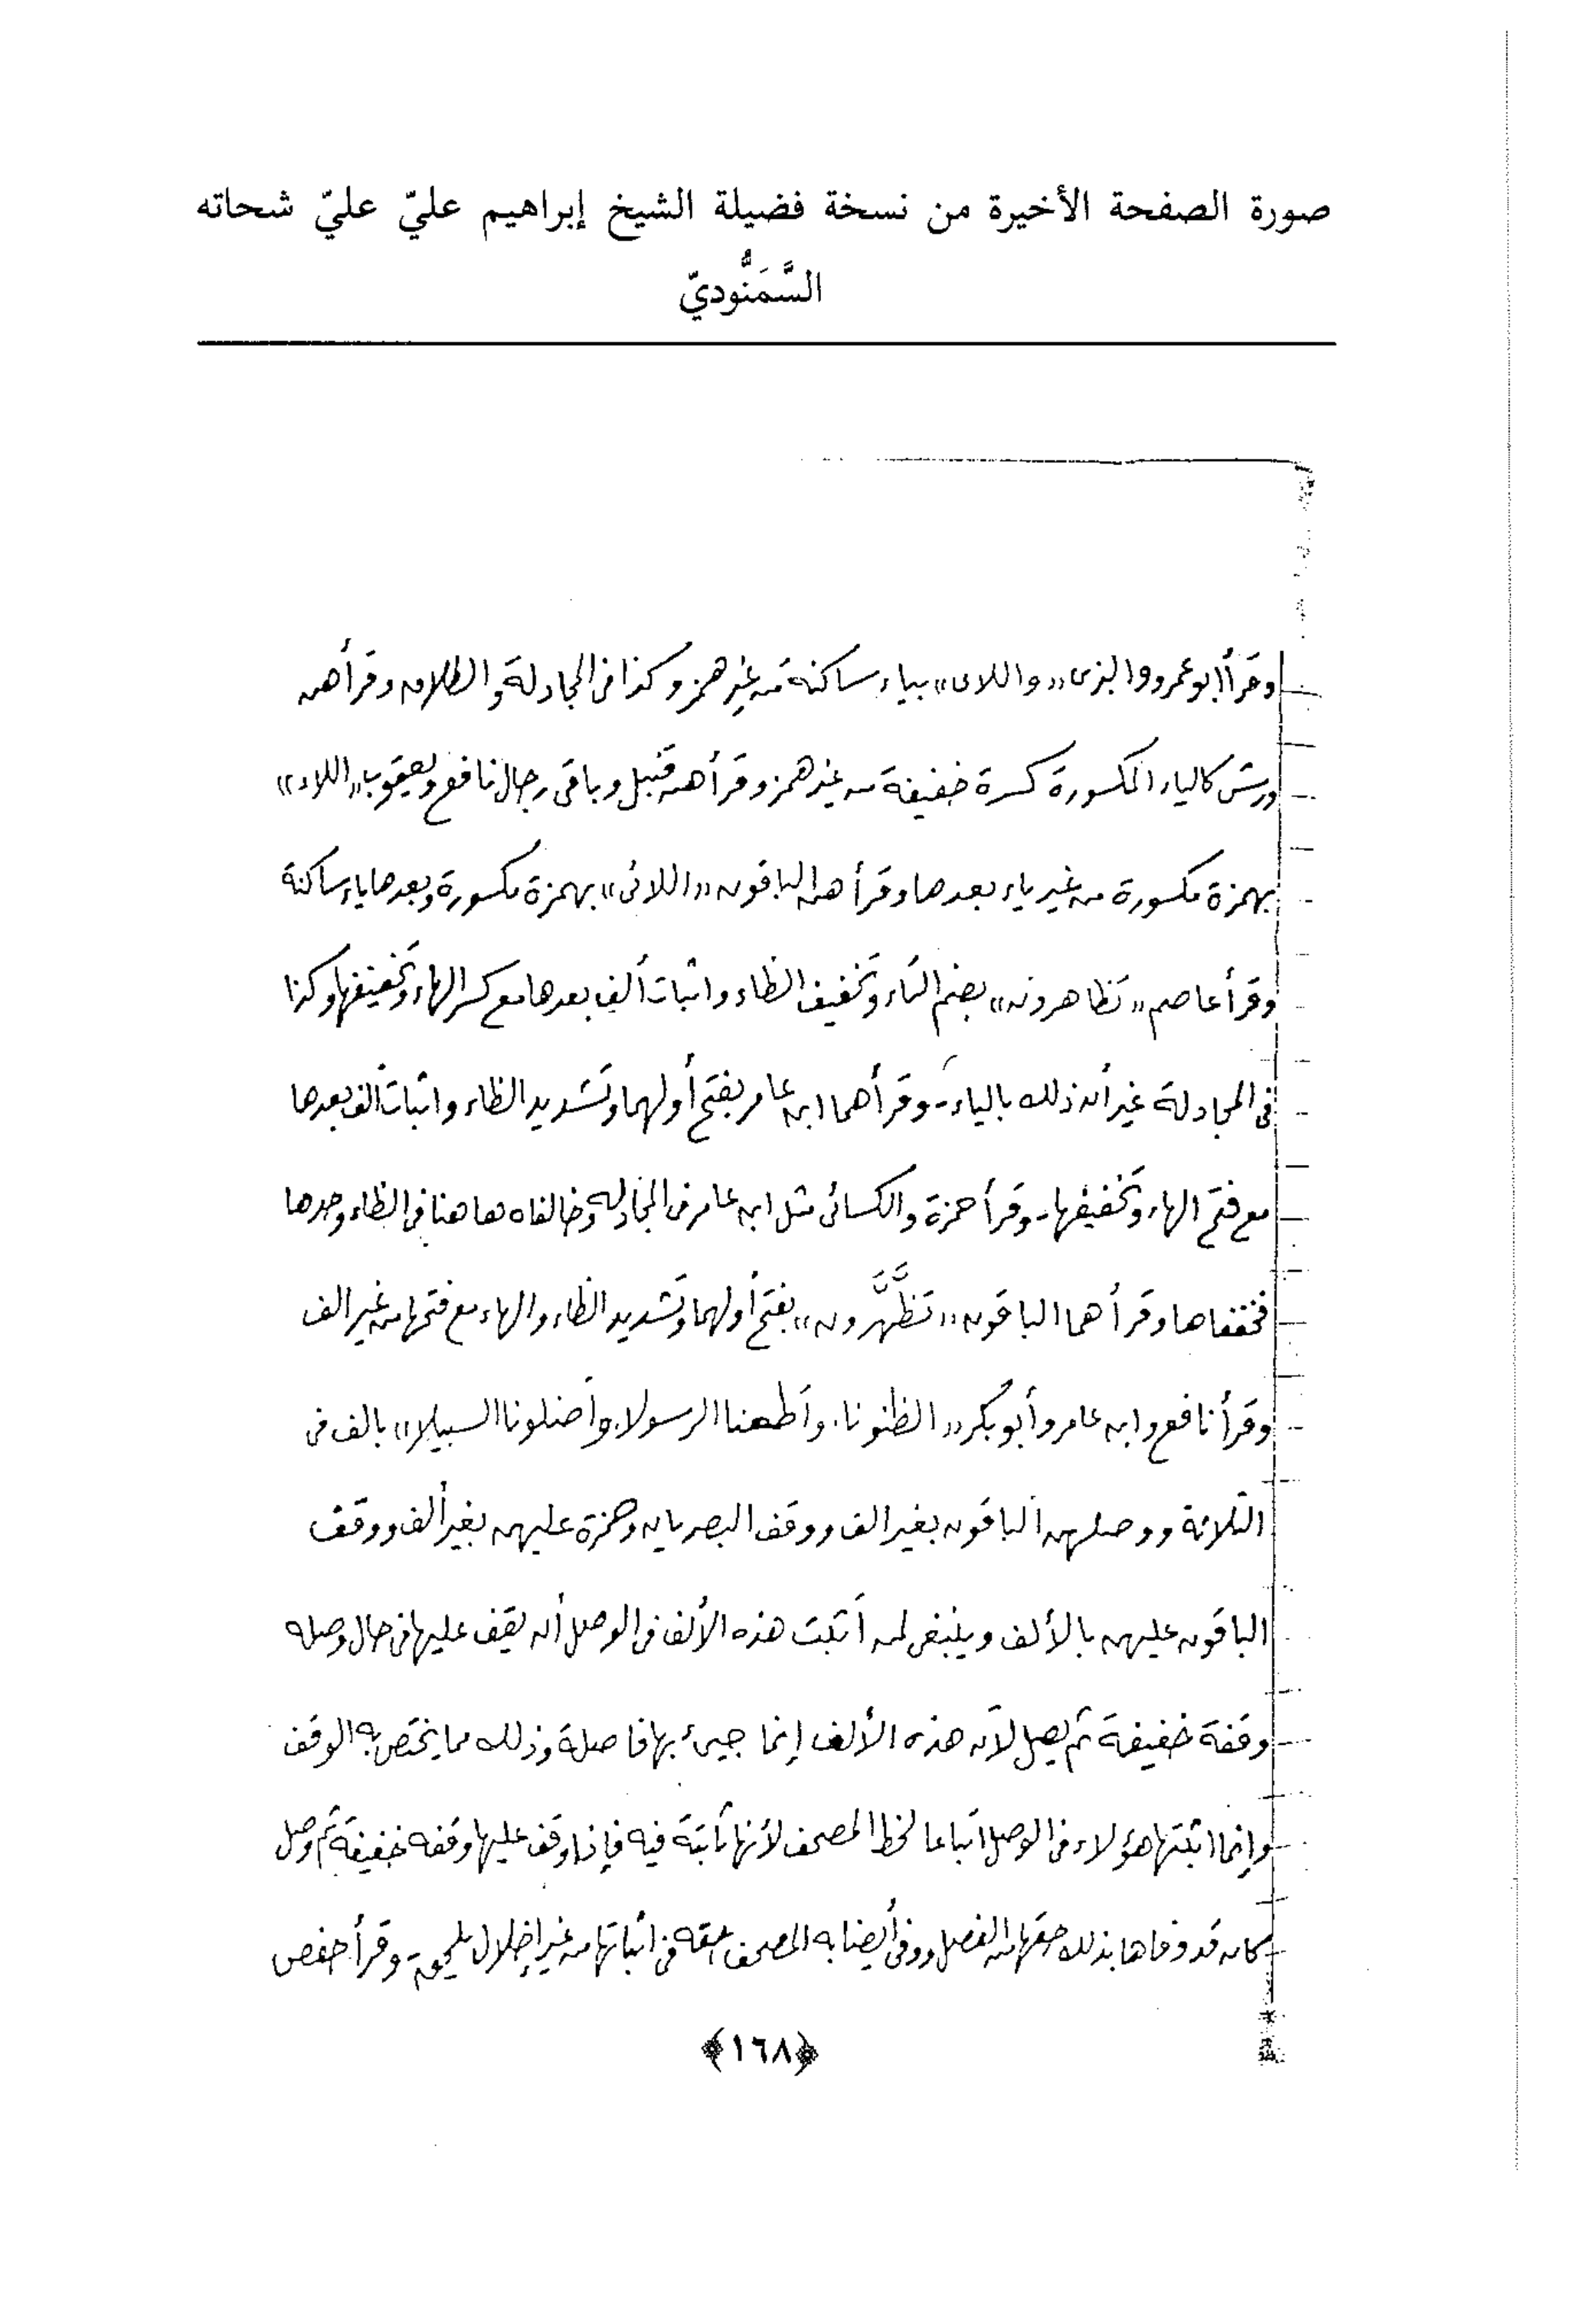 صورة الصفحة الأخيرة من نسخة فضيلة الشيخ إبراهيم عليّ عليّ شحاته
السَّمَنُّوديّ
وقرأ أبو عمرو والبزى «واللاى» بياء ساكنة من غير همز وكذا فى المجادلة والطلاق وقرأهن
ورش كالياء المكسورة كسرة خفيفة من غير همز وقرأهن قنبل وباقى رجال نافع ويعقوب «اللاء»
بهمزة مكسورة من غير ياء بعدها وقرأهن الباقون «اللائى» بهمزة مكسورة وبعدها ياء ساكنة
وقرأ عاصم «تظاهرون» بضم التاء وتخفيف الظاء واثبات ألف بعدها مع كسر الهاء وتخفيفها وكذا
فى المجادلة غير أن ذلك بالياء - وقرأهما ابن عامر بفتح أولهما وتشديد الظاء واثبات ألف بعدها
مع فتح الهاء وتخفيفها - وقرأ حمزة والكسائى مثل ابن عامر فى المجادلة وخالفاه هاهنا فى الظاء وحدها
فخففاها وقرأهما الباقون «تظَّهَّرون» بفتح أولهما وتشديد الظاء والهاء مع فتحها من غير الف
وقرأ نافع وابن عامر وأبو بكر «الظنونا. وأطعنا الرسولا. وأضلونا السبيلا» بالف فى
الثلاثة ووصلهن الباقون بغير الف ووقف البصريان وحمزة عليهن بغير ألف ووقف
الباقون عليهن بالألف وينبغى لمن أثبت هذه الألف فى الوصل أن يقف عليها فى حال وصله
وقفة خفيفة ثم يصل لأن هذه الألف إنما جيئ بها فاصلة وذلك مما يختص به الوقف
وإنما اثبتها هؤلاء فى الوصل اتباعا لخط المصحف لأنها ثابتة فيه فإذا وقف عليها وقفه خفيفة ثم وصل
كان قد وفاها بذلك حقها من الفصل ووفى أيضا به المصحف حقه فى اثباتها من غير إخلال وقرأ حفص
﴿١٦٨﴾